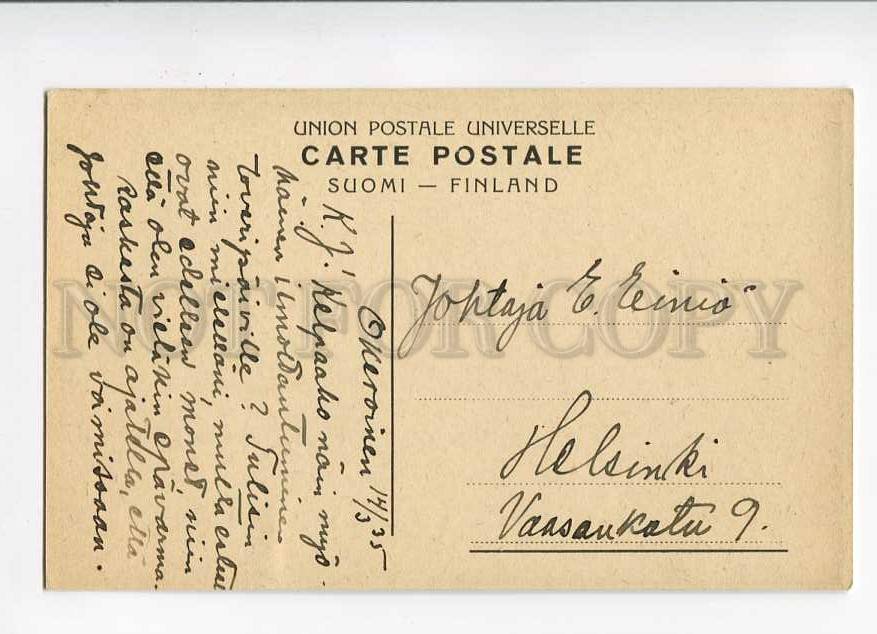 UNION POSTALE UNIVERSELLE
CARTE POSTALE
SUOMI — FINLAND
Okeroinen 14/3 35
K. J. Kelpaako näin myö-
häinen ilmoittautuminen
toveripäiville? Tulisin
niin mielelläni, mutta esteet
ovat edelleen monet, niin
että olen vieläkin epävarma.
Raskasta on ajatella, että
Johtaja ei ole voimissaan.
Johtaja E. Einiö
Helsinki
Vaasankatu 9.
NOT FOR COPY